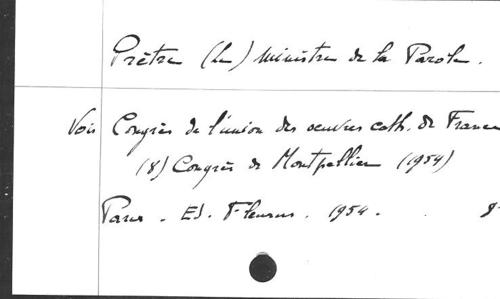 Prêtre (Le) Ministre de la Parole.
Voir Congrès de l'union des oeuvres cath. de France
(8) Congrès de Montpellier (1954)
Paris - Ed. Fleurus. 1954.